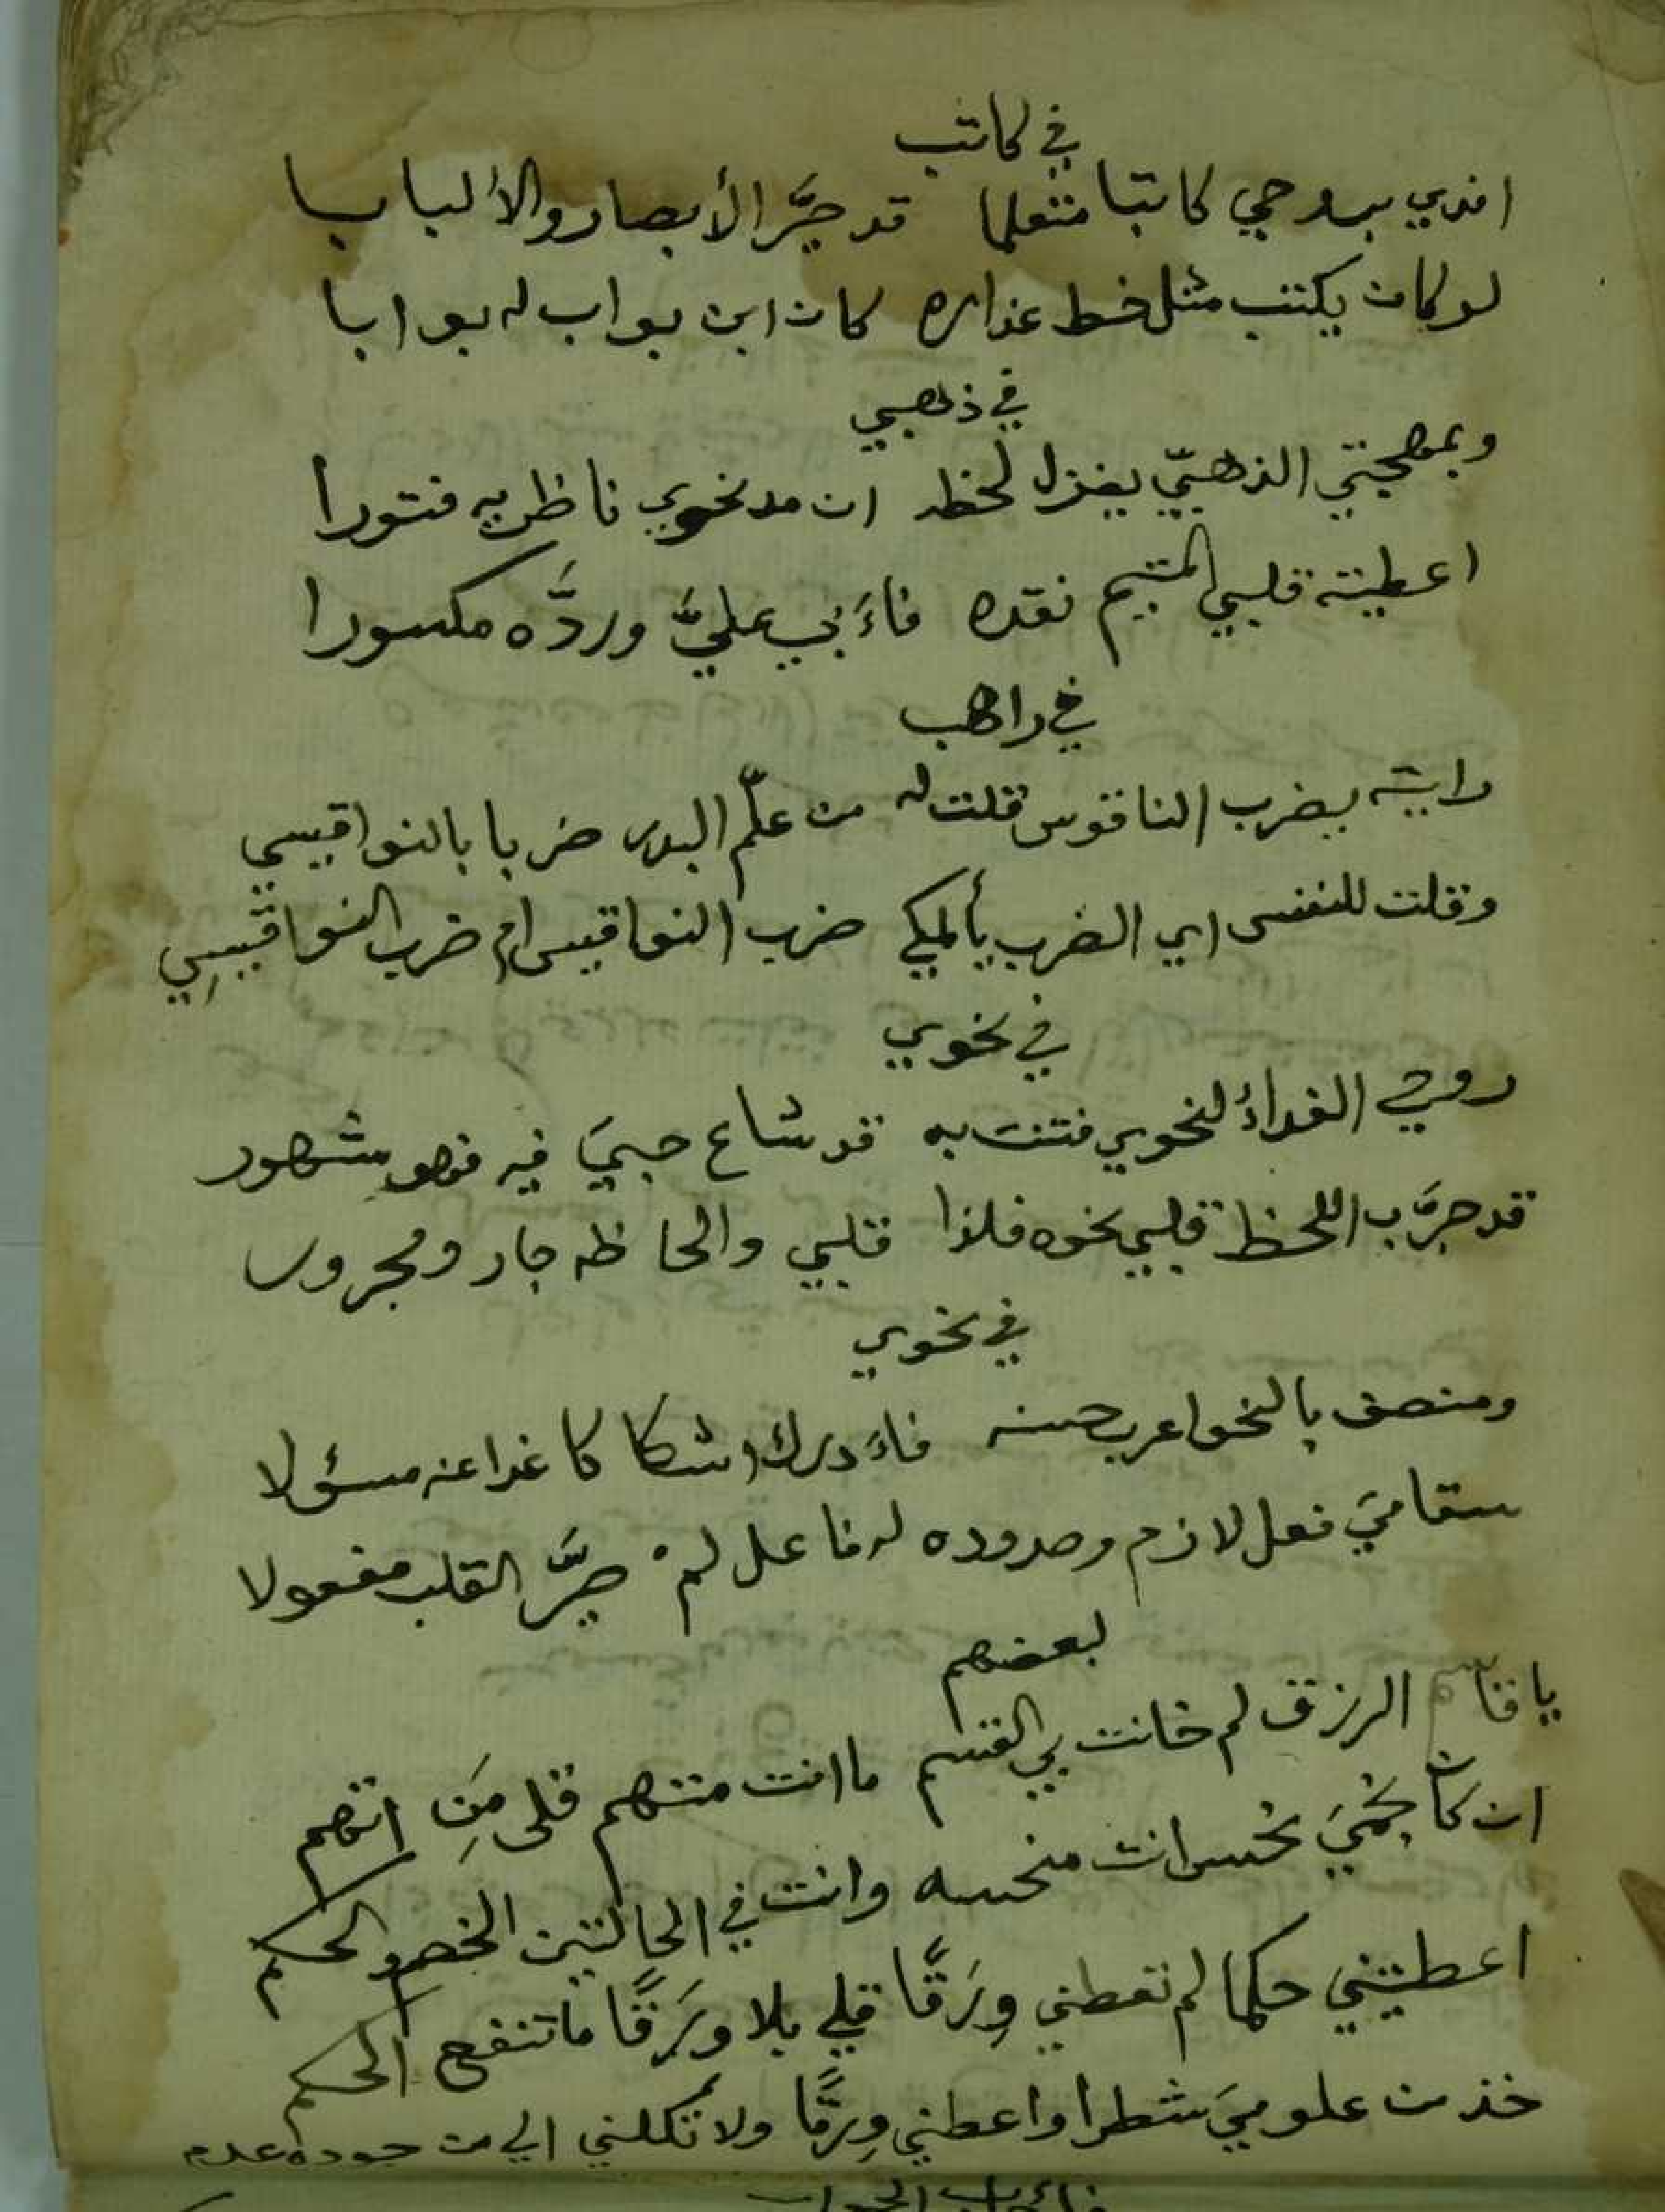 في كاتب
افدي بروحي كاتبا متعلما قد حيَّر الأبصار والألبابا
لو كان يكتب مثل خط عذاره كان ابن بواب له بوابا
في ذهبي
وبمهجتي الذهبيّ يغزل لحظه ان مد نحوي ناظريه فتورا
اعطيته قلبي المتيم نقده فاءَبي عليَّ وردَّه مكسورا
في راهب
رايته يضرب الناقوس قلت له من علّم البدر ضربا بالنواقيسي
وقلت للنفس اي الضرب يألمكي ضرب النواقيس ام ضرب النواقيسِي
في نحوي
روحي الفداءُ لنحوي فتنت به قد شاع حبيَ فيه فهو مشهور
قد جرَّب اللحظ قلبي نحوه فلذا قلبي والحاظه جار ومجرور
في نحوي
ومتصف بالنحو اعرب حسنه فاءَدرك اشكالا غدا عنه مسئولا
سقاميَ فعل لازم وصدوده له فاعل لمْ صيَّر القلب مفعولا
لبعضهم
يا قاسم الرزق لم خانت بي القسم ما انت متهم قلي مَنِ اتهم
ان كان نجميَ نحس انت منحسه وانت في الحالتين الخصم والحكم
اعطيتني حكما لم تعطني وِرَقًا قلي بلا وَرَقًا ما تنفع الحكم
خذ من علوميَ شطرا واعطني وِرَقًا ولا تكلني الي من جوده عدم